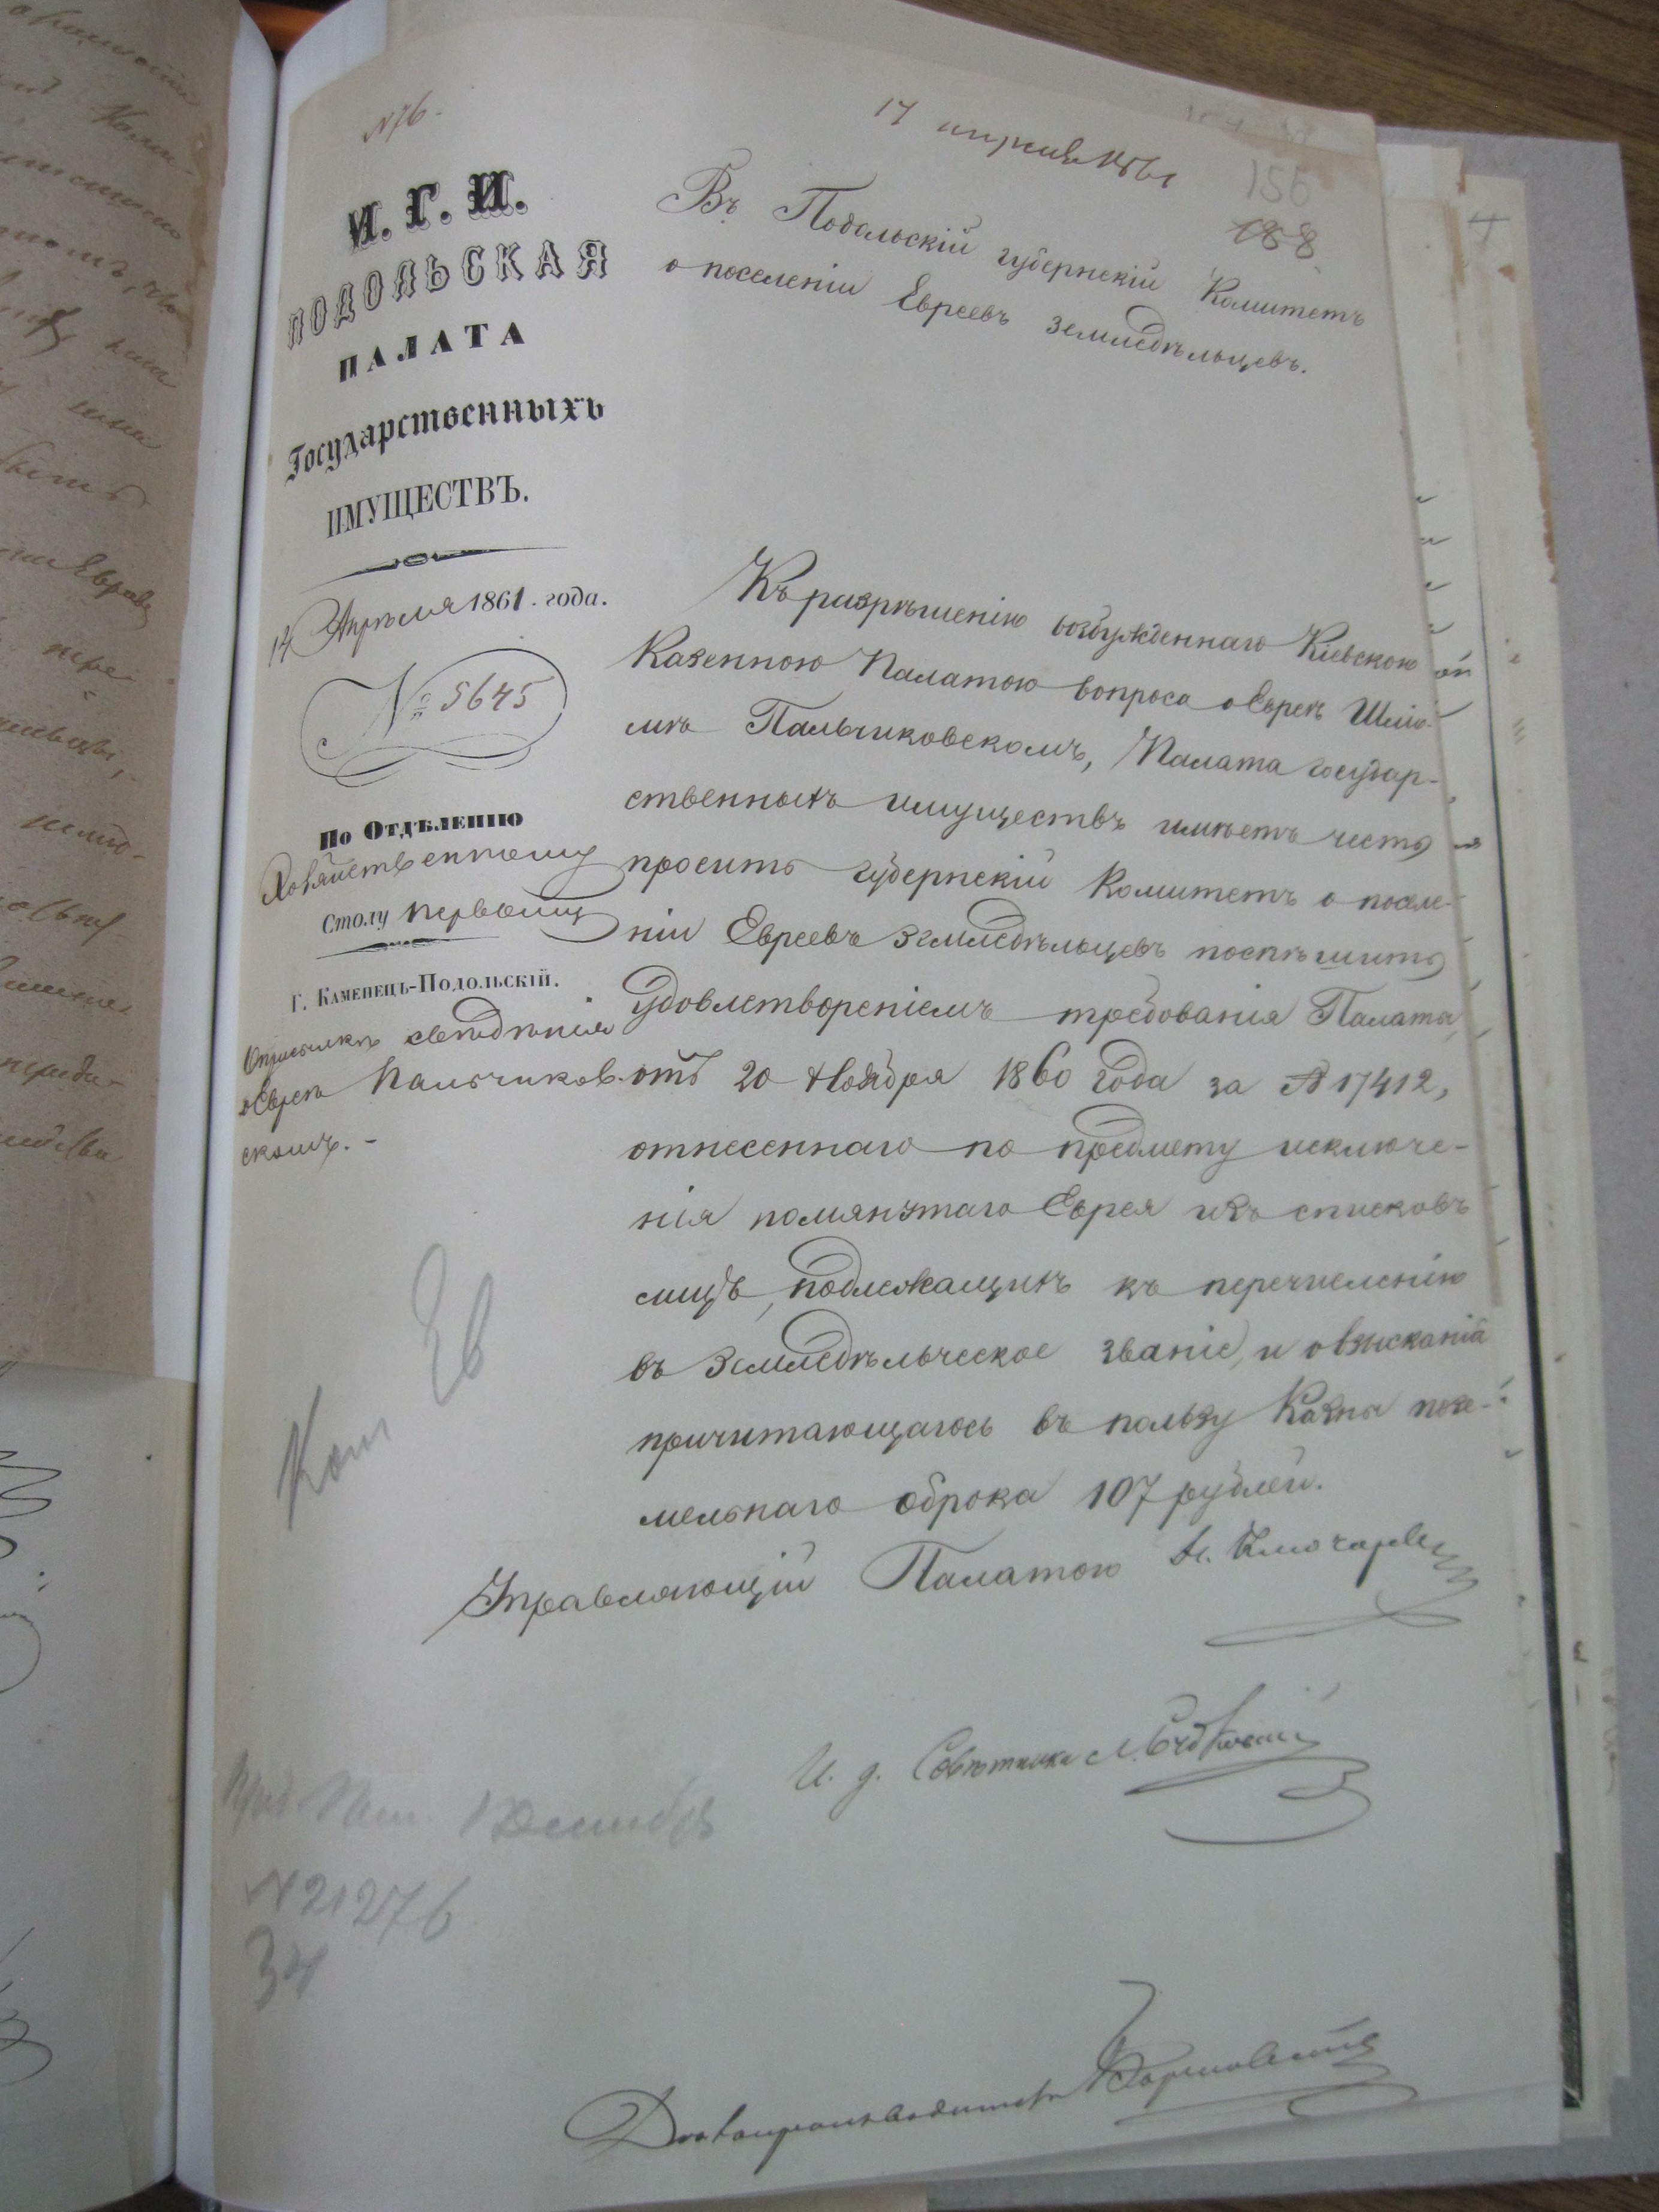 № 76.
17 апреля 1861
156
188
М. Г. И.
ПОДОЛЬСКАЯ
ПАЛАТА
Государственныхъ
ИМУЩЕСТВЪ.
14 Апрѣля 1861. года.
№ 5645
По Отдѣленію
Хозяйственному
Столу первому
Г. Каменецъ-Подольскій.
О присылкѣ свѣдѣнія
о Евреѣ Пальчиков-
скомъ. -
Въ Подольскій губернскій Комитетъ
о поселеніи Евреевъ земледѣльцевъ.
Къ разрѣшенію возбужденнаго Кіевскою
Казенною Палатою вопроса о Евреѣ Шлio-
мѣ Пальчиковскомъ, Палата государ-
ственныхъ имуществъ имѣетъ честь
просить губернскій Комитетъ о поселе-
ніи Евреевъ земледѣльцевъ поспѣшить
удовлетвореніемъ требованія Палаты
отъ 20 Ноября 1860 года за № 17412,
отнесеннаго по предмету исключе-
нія помянутаго Еврея изъ списковъ
лицъ, подлежащихъ къ перечисленію
въ земледѣльческое званіе, и о взысканіи
причитающагося въ пользу Казны позе-
мельнаго оброка 107 рублей.
Управляющій Палатою Н. Ключарев
И. д. Совѣтника
Ком Ев
№ 21276
34
Дѣлопроизводитель